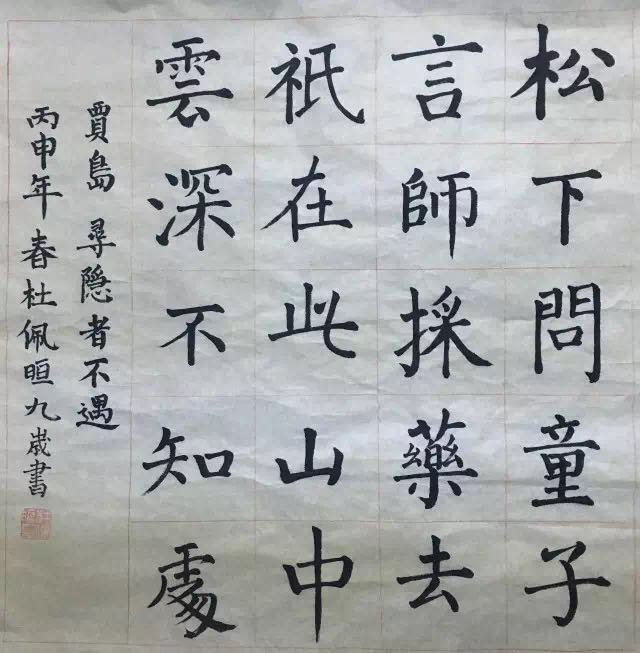 松下問童子
言師採藥去
祇在此山中
雲深不知處
賈島 尋隐者不遇
丙申年春杜佩晅九歲書